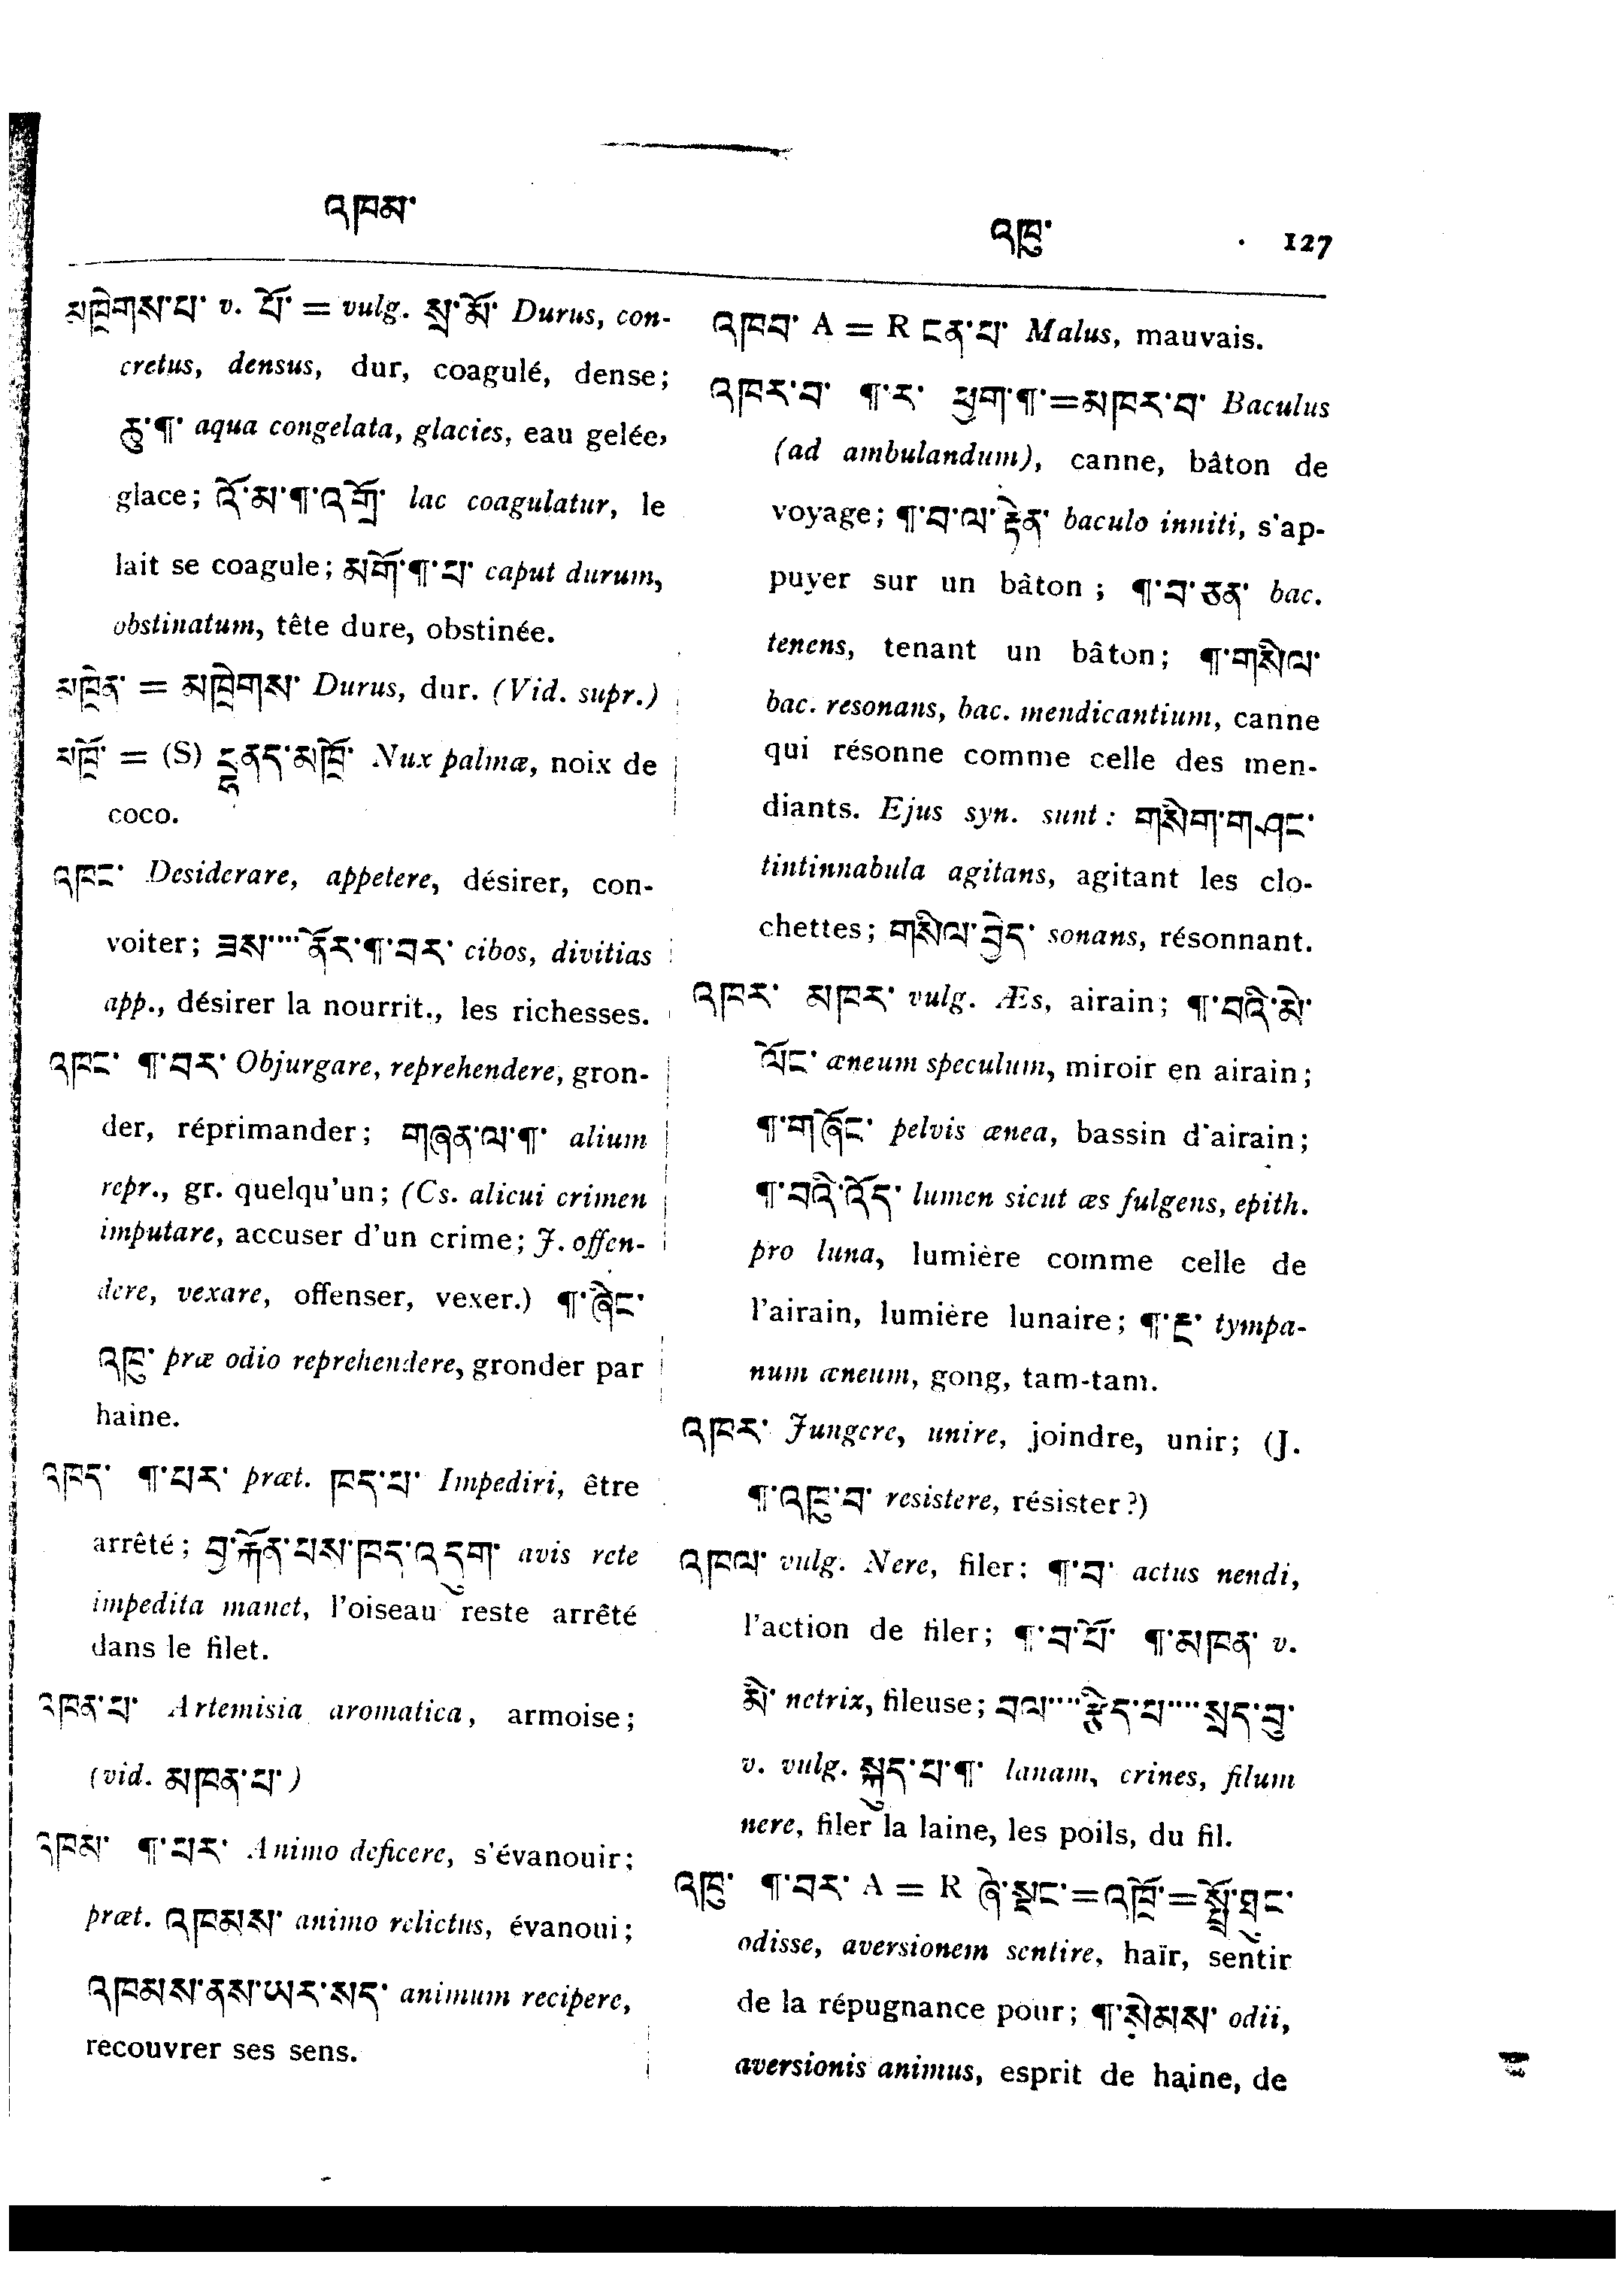 འཁམ་
འཁུ་ 127
མཁྲེགས་པ་ v. པོ་ = vulg. སྲ་མོ་ Durus, con-
cretus, densus, dur, coagulé, dense;
ཆུ་¶་ aqua congelata, glacies, eau gelée,
glace; འོ་མ་¶་འགྲོ་ lac coagulatur, le
lait se coagule; མགོ་¶་པ་ caput durum,
obstinatum, tête dure, obstinée.
མཁྲེན་ = མཁྲེགས་ Durus, dur. (Vid. supr.)
མཁྲོ་ = (S) མཁྲོ་ Nux palmæ, noix de
coco.
འཁང་ Desiderare, appetere, désirer, con-
voiter; ཟས་···· ནོར་¶་བར་ cibos, divitias
app., désirer la nourrit., les richesses.
འཁང་ ¶་བར་ Objurgare, reprehendere, gron-
der, réprimander; གཞན་ལ་¶་ alium
repr., gr. quelqu'un; (Cs. alicui crimen
imputare, accuser d'un crime; J. offen-
dere, vexare, offenser, vexer.) ¶་ཞིང་
འཁུ་ præ odio reprehendere, gronder par
haine.
འཁད་ ¶་པར་ præt. ཁད་པ་ Impediri, être
arrêté; བྱ་རྙོན་པས་ཁད་འདུག་ avis rete
impedita manet, l'oiseau reste arrêté
dans le filet.
འཁན་པ་ Artemisia aromatica, armoise;
(vid. མཁན་པ་)
འཁམ་ ¶་པར་ Animo deficere, s'évanouir;
præt. འཁམས་ animo relictus, évanoui;
འཁམས་ནས་ཡར་སད་ animum recipere,
recouvrer ses sens.
འཁབ་ A = R ངན་པ་ Malus, mauvais.
འཁར་བ་ ¶་ར་ ཕྱག་¶་=མཁར་བ་ Baculus
(ad ambulandum), canne, bâton de
voyage; ¶་བ་ལ་རྟེན་ baculo inniti, s'ap-
puyer sur un bâton; ¶་བ་ཅན་ bac.
tenens, tenant un bâton; ¶་གསིལ་
bac. resonans, bac. mendicantium, canne
qui résonne comme celle des men-
diants. Ejus syn. sunt: གསེག་གཤང་
tintinnabula agitans, agitant les clo-
chettes; གསིལ་བྱེད་ sonans, résonnant.
འཁར་ མཁར་ vulg. Æs, airain; ¶་བའི་མེ་
ལོང་ æneum speculum, miroir en airain;
¶་གཞོང་ pelvis ænea, bassin d'airain;
¶་བའི་འོད་ lumen sicut æs fulgens, epith.
pro luna, lumière comme celle de
l'airain, lumière lunaire; ¶་རྔ་ tympa-
num æneum, gong, tam-tam.
འཁར་ Jungere, unire, joindre, unir; (J.
¶་འཁུ་བ་ resistere, résister?)
འཁལ་ vulg. Nere, filer; ¶་བ་ actus nendi,
l'action de filer; ¶་བ་པོ་ ¶་མཁན་ v.
མི་ netrix, fileuse; བལ་···· རྩིད་པ་···· སྲད་བུ་
v. vulg. སྐུད་པ་¶་ lanam, crines, filum
nere, filer la laine, les poils, du fil.
འཁུ་ ¶་བར་ A = R ཞེ་སྡང་=འཁྲོ་=
odisse, aversionem sentire, haïr, sentir
de la répugnance pour; ¶་སེམས་ odii,
aversionis animus, esprit de haine, de